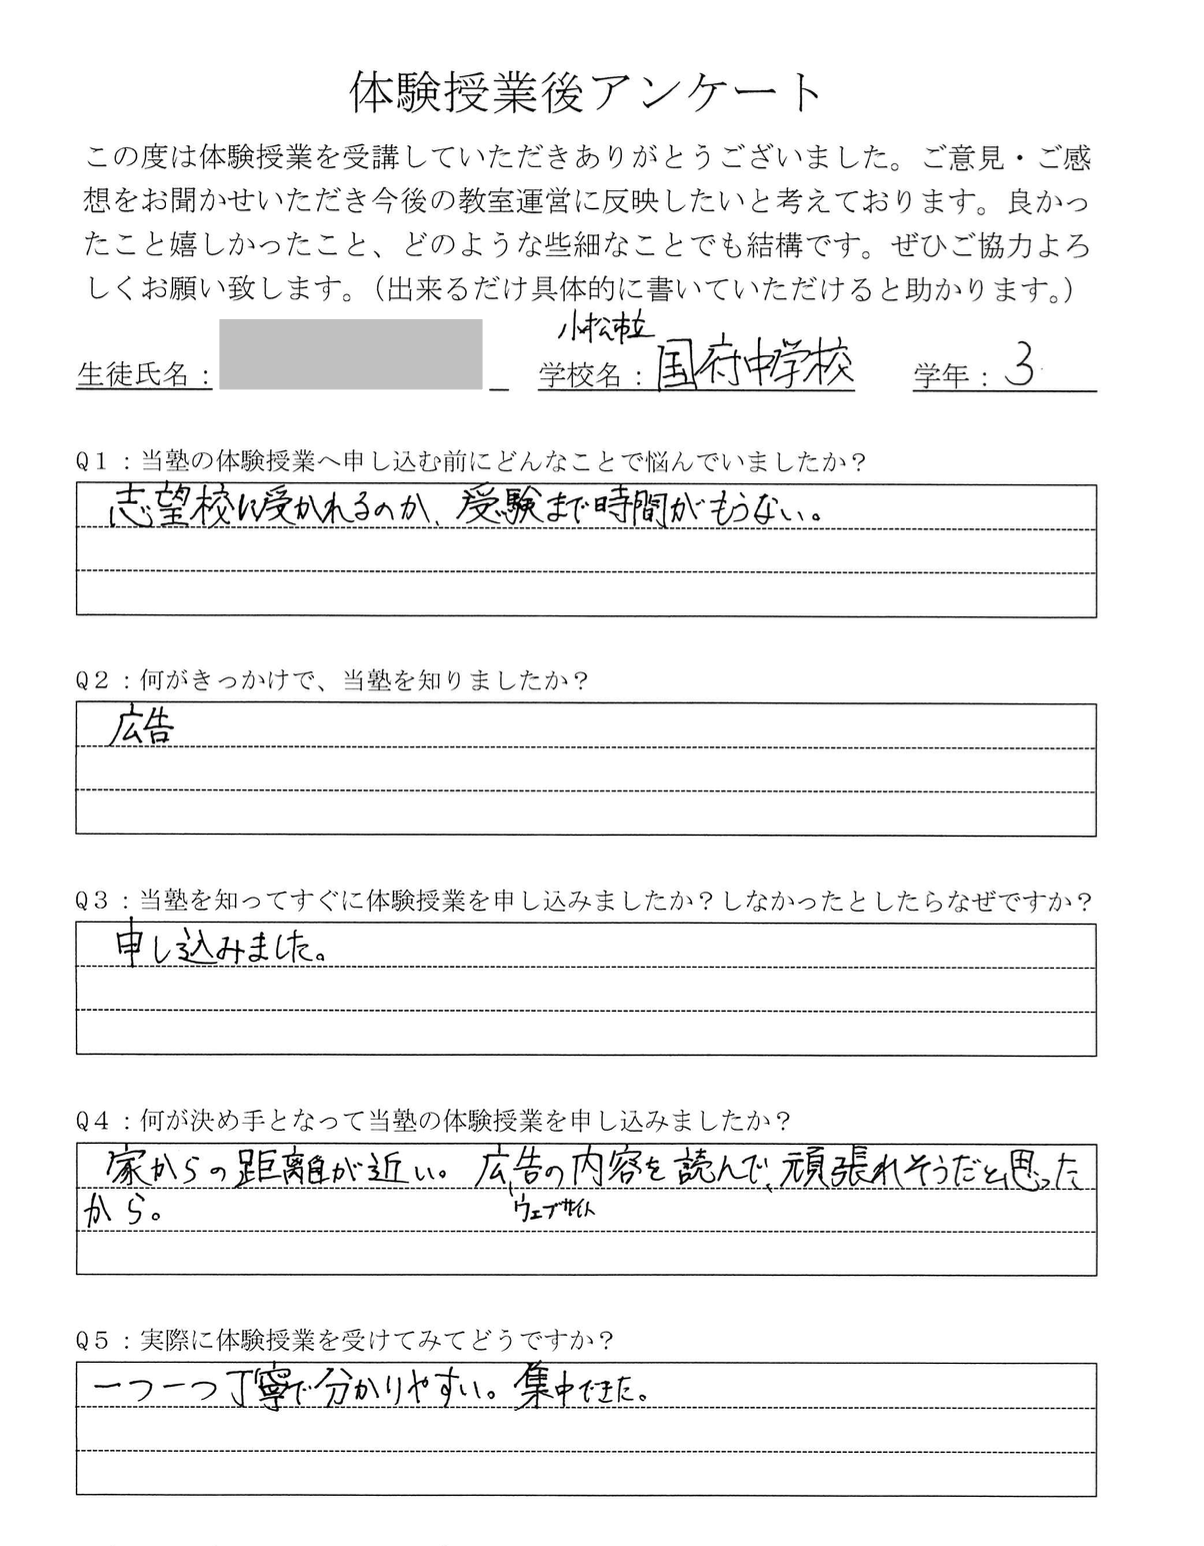 体験授業後アンケート
この度は体験授業を受講していただきありがとうございました。ご意見・ご感
想をお聞かせいただき今後の教室運営に反映したいと考えております。良かっ
たこと嬉しかったこと、どのような些細なことでも結構です。ぜひご協力よろ
しくお願い致します。（出来るだけ具体的に書いていただけると助かります。）
小松市立
生徒氏名： 学校名：国府中学校 学年：3
Q1：当塾の体験授業へ申し込む前にどんなことで悩んでいましたか？
志望校に受かれるのか、受験まで時間がもうない。
Q2：何がきっかけで、当塾を知りましたか？
広告
Q3：当塾を知ってすぐに体験授業を申し込みましたか？しなかったとしたらなぜですか？
申し込みました。
Q4：何が決め手となって当塾の体験授業を申し込みましたか？
家からの距離が近い。広告の内容を読んで、頑張れそうだと思った
から。 ウェブサイト
Q5：実際に体験授業を受けてみてどうですか？
一つ一つ丁寧で分かりやすい。集中できた。